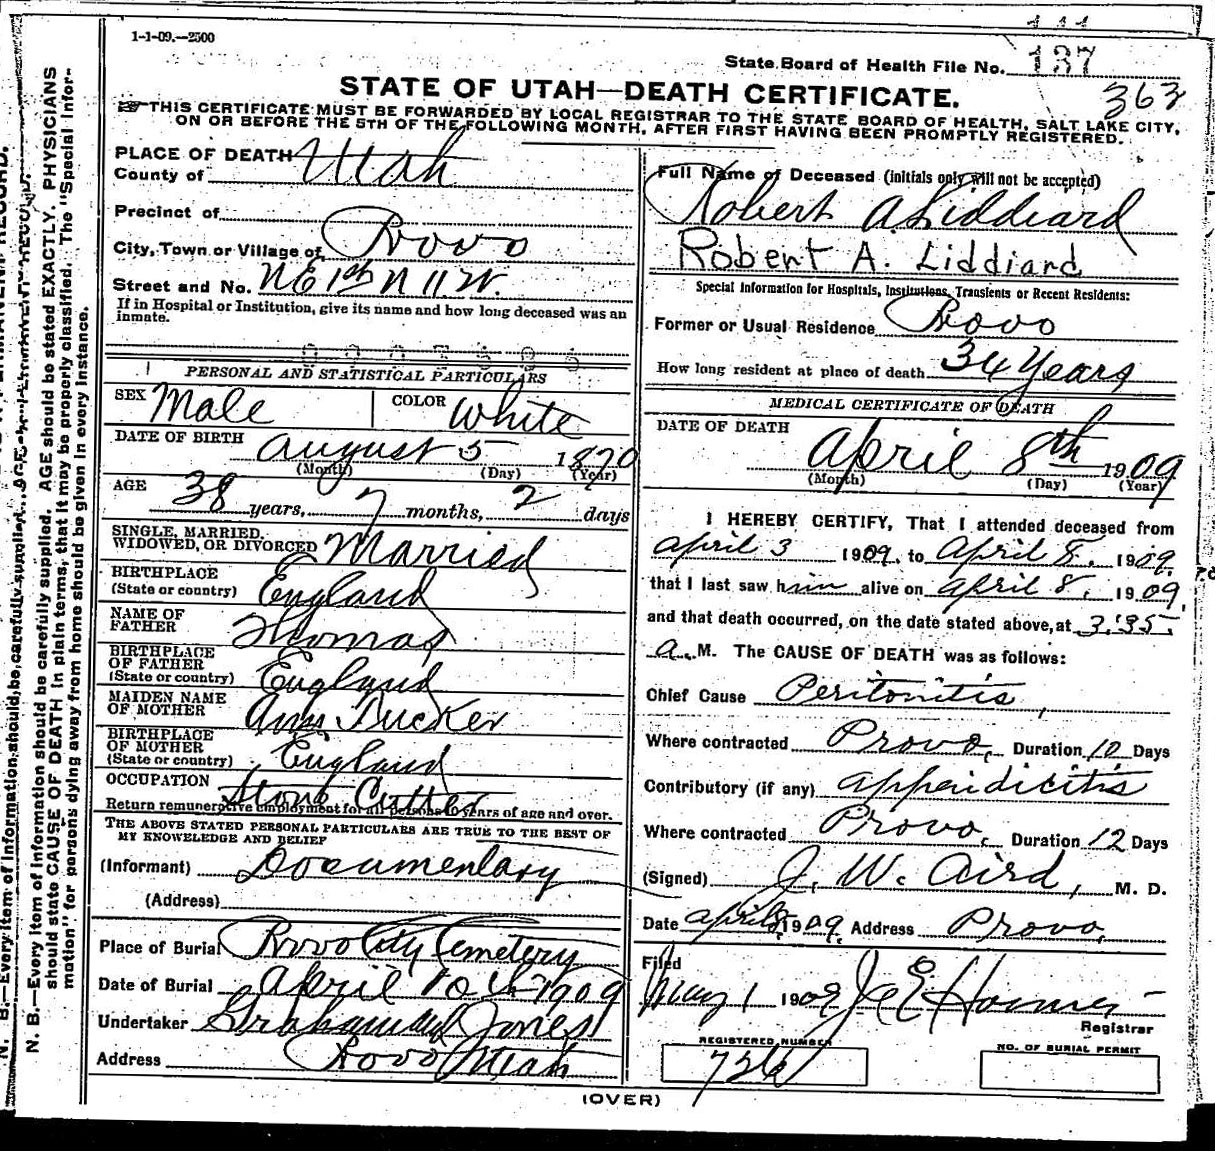 1-1-09.—2500
State Board of Health File No. 137
363
STATE OF UTAH—DEATH CERTIFICATE.
THIS CERTIFICATE MUST BE FORWARDED BY LOCAL REGISTRAR TO THE STATE BOARD OF HEALTH, SALT LAKE CITY,
ON OR BEFORE THE 5TH OF THE FOLLOWING MONTH, AFTER FIRST HAVING BEEN PROMPTLY REGISTERED.
PLACE OF DEATH
County of Utah
Precinct of
City, Town or Village of Provo
Street and No. N E 1st N 11 W.
If in Hospital or Institution, give its name and how long deceased was an
inmate.
PERSONAL AND STATISTICAL PARTICULARS
SEX Male COLOR White
DATE OF BIRTH August 5 1870
(Month) (Day) (Year)
AGE 38 years, 7 months, 2 days
SINGLE, MARRIED,
WIDOWED, OR DIVORCED Married
BIRTHPLACE
(State or country) England
NAME OF
FATHER Thomas
BIRTHPLACE
OF FATHER
(State or country) England
MAIDEN NAME
OF MOTHER Ann Tucker
BIRTHPLACE
OF MOTHER
(State or country) England
OCCUPATION Stone Cutter
Return remunerative employment for all persons 10 years of age and over.
THE ABOVE STATED PERSONAL PARTICULARS ARE TRUE TO THE BEST OF
MY KNOWLEDGE AND BELIEF
(Informant) Documentary
(Address)
Place of Burial Provo City Cemetery
Date of Burial April 10th 1909
Undertaker Graham and Jones
Address Provo Utah
Full Name of Deceased (initials only will not be accepted)
Robert A Liddiard
Robert A. Liddiard
Special Information for Hospitals, Institutions, Transients or Recent Residents:
Former or Usual Residence Provo
How long resident at place of death 34 Years
MEDICAL CERTIFICATE OF DEATH
DATE OF DEATH
April 8th 1909
(Month) (Day) (Year)
I HEREBY CERTIFY, That I attended deceased from
April 3 1909, to April 8, 1909,
that I last saw him alive on April 8, 1909,
and that death occurred, on the date stated above, at 3:35.
a. M. The CAUSE OF DEATH was as follows:
Chief Cause Peritonitis,
Where contracted Provo, Duration 10 Days
Contributory (if any) appendicitis
Where contracted Provo, Duration 12 Days
(Signed) J. W. Aird, M. D.
Date April 8, 1909, Address Provo,
Filed
May 1 1909
Registrar
REGISTERED NUMBER
NO. OF BURIAL PERMIT
(OVER)
N. B.—Every item of information should be carefully supplied. AGE should be stated EXACTLY. PHYSICIANS
should state CAUSE OF DEATH in plain terms, that it may be properly classified. The "Special Infor-
mation" for persons dying away from home should be given in every instance.